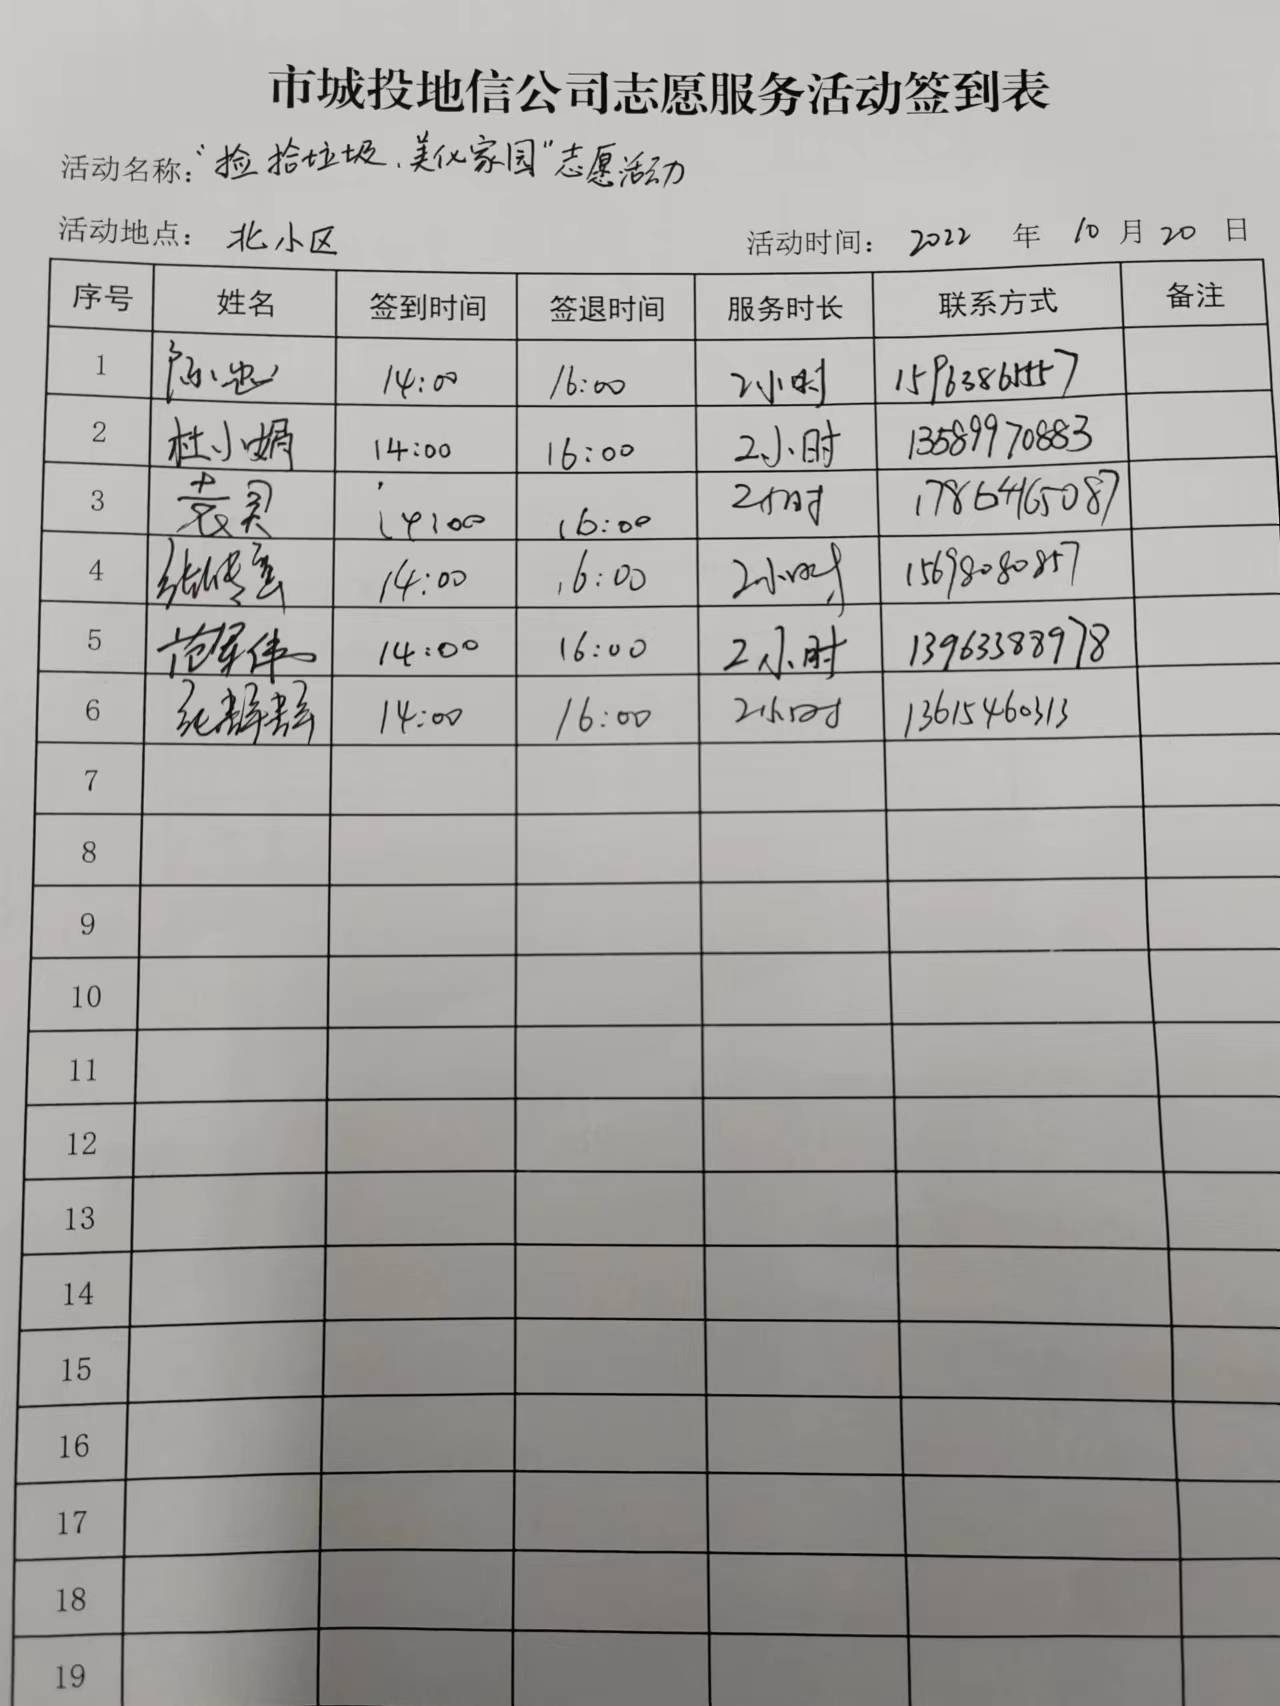 市城投地信公司志愿服务活动签到表
活动名称："捡拾垃圾、美化家园"志愿活动
活动地点：北小区 活动时间：2022年10月20日
序号 姓名 签到时间 签退时间 服务时长 联系方式 备注
1 14:00 16:00 2小时
2 杜小娟 14:00 16:00 2小时 13589970883
3 袁昊 14:00 16:00 2小时 17864165087
4 14:00 16:00 2小时 15698080857
5 范军伟 14:00 16:00 2小时 13963388978
6 14:00 16:00 2小时 13615460313
7
8
9
10
11
12
13
14
15
16
17
18
19